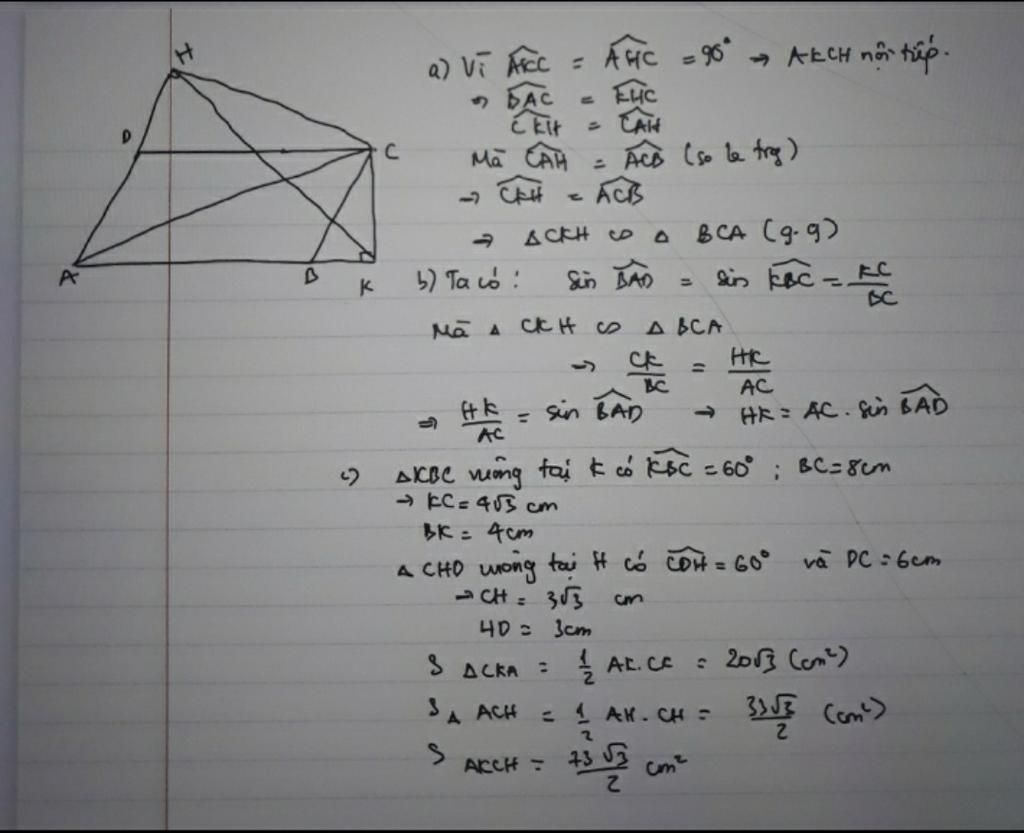 H
D
C
A
B
K
a) Vì \widehat{AKC} = \widehat{AHC} = 90° → AKCH nội tiếp.
⇒ \widehat{BAC} = \widehat{KHC}
\widehat{CKH} = \widehat{CAH}
Mà \widehat{CAH} = \widehat{ACB} (so le trg)
→ \widehat{CKH} = \widehat{ACB}
⇒ Δ CKH ∽ Δ BCA (g.g)
b) Ta có: sin \widehat{BAD} = sin \widehat{KBC} = \frac{KC}{BC}
Mà Δ CKH ∽ Δ BCA
→ \frac{CK}{BC} = \frac{HK}{AC}
⇒ \frac{HK}{AC} = sin \widehat{BAD} → HK = AC . sin \widehat{BAD}
c) ΔKBC vuông tại K có \widehat{KBC} = 60° ; BC = 8cm
→ KC = 4√3 cm
BK = 4cm
Δ CHD vuông tại H có \widehat{CDH} = 60° và DC = 6cm
→ CH = 3√3 cm
HD = 3cm
S Δ CKA = \frac{1}{2} AK.CK = 20√3 (cm²)
S Δ ACH = \frac{1}{2} AH . CH = \frac{33√3}{2} (cm²)
S AKCH = \frac{73√3}{2} cm²